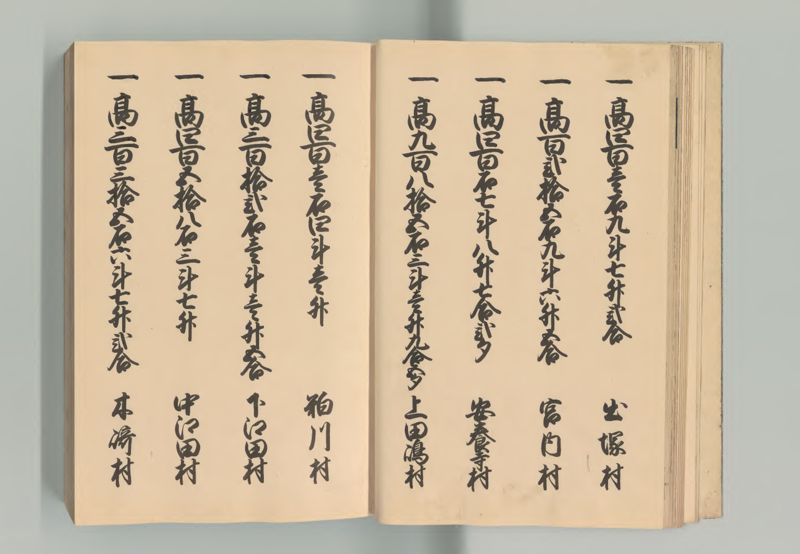 一 高四百壱石九斗七升弐合 出塚村
一 高百弐拾五石九斗六升五合 宮内村
一 高四百石七斗八升七合弐夕 安養寺村
一 高九百八拾五石三斗壱升九合五夕 上田嶋村
一 高四百壱石四斗壱升 粕川村
一 高三百拾弐石壱斗壱升五合 下江田村
一 高四百五拾八石三斗七升 中江田村
一 高三百三拾五石六斗七升弐合 木崎村